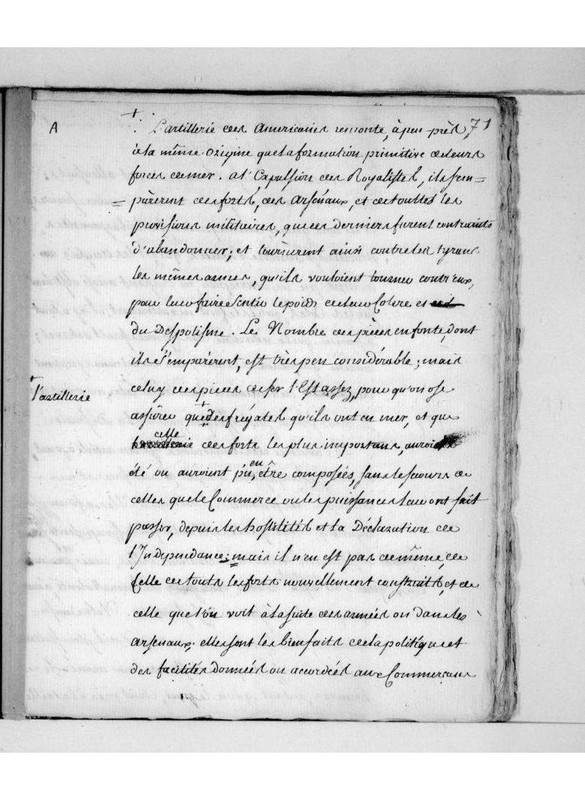 71
A
L'artillerie des Americains remonte, à peu près,
à la même origine que la formation primitive de leurs
forces de mer. a l'Expulsion des Royalistes, ils s'em=
=parèrent des forts, des arsénaux, et de touttes les
provisions militaires, que ces derniers furent contraints
d'abandonner; et tournerent ainsi contre les tyrans
les mêmes armes, qu'ils vouloient tourner contr'eux,
pour leur faire sentir le poids de leur Colere et
du Despotisme. Le Nombre des pièces en fonte, dont
ils s'emparèrent, est très peu considérable; mais
celuy des pieces de fer l'Est assez, pour qu'on ose
l'artillerie
assurer que des fregates qu'ils ont en mer, et que
celle des forts les plus importans, auroient
été ou auroient pu en être composées, sans le secours de
celles que le Commerce ou les puissances leur ont fait
passer, depuis les hostilités et la Déclaration de
l'Independance; mais il n'en est pas de même, de
celle de touts les forts nouvellement construits, et de
celle que l'on voit à la suite des armées ou dans les
arsenaux; elles sont les bienfaits de la politique et
des facilités données ou accordées aux Commerçans